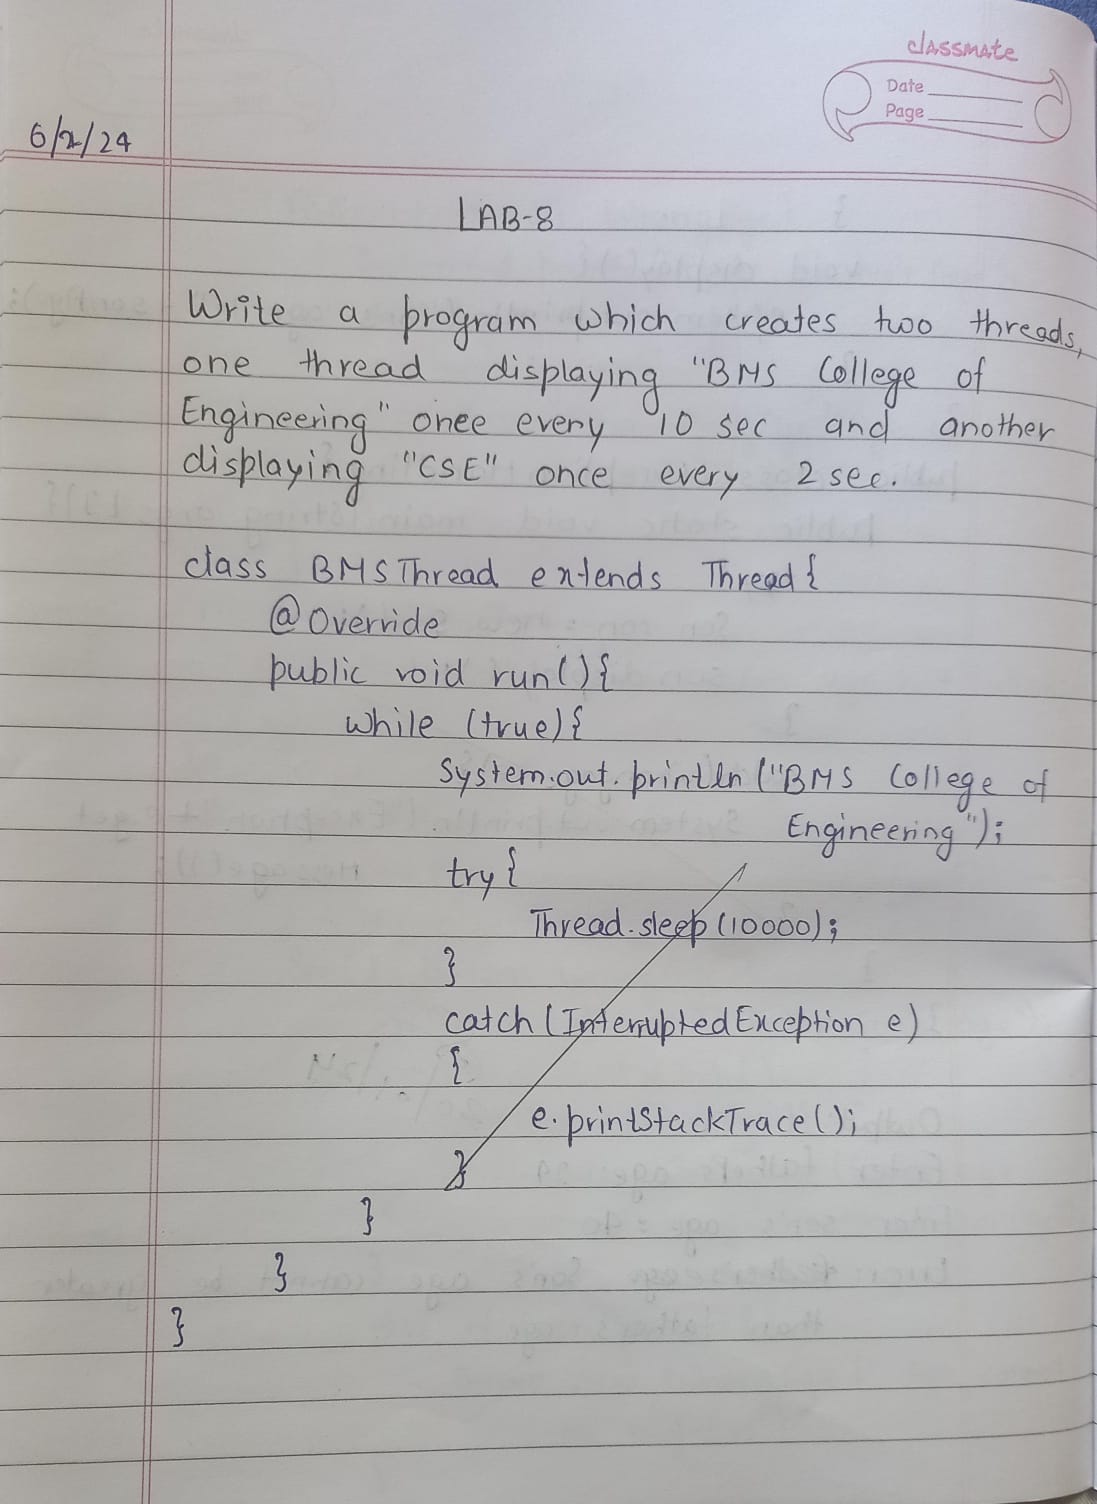 classmate
Date
Page
6/2/24
LAB-8
Write a program which creates two threads,
one thread displaying "BMS College of
Engineering" once every 10 sec and another
displaying "CSE" once every 2 sec.
class BMSThread extends Thread{
@Override
public void run(){
while (true){
System.out.println("BMS College of
Engineering");
try{
Thread.sleep(10000);
}
catch(InterruptedException e)
{
e.printStackTrace();
}
}
}
}